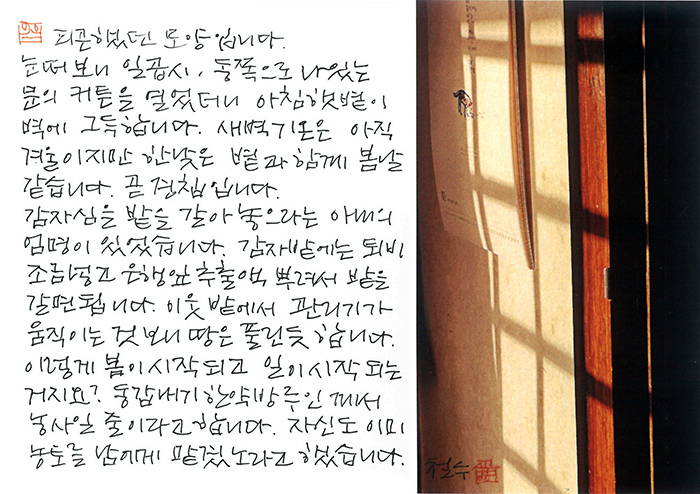 피곤했었던 모양입니다.
눈떠보니 일곱시, 동쪽으로 나있는
문의 커튼을 열었더니 아침햇볕이
벽에 그득합니다. 새벽기온은 아직
겨울이지만 한낮은 볕과 함께 봄날
같습니다. 곧 경칩입니다.
감자심을 밭을 갈아 놓으라는 아내의
엄명이 있었습니다. 감자밭에는 퇴비
조금넣고 은행잎추출액 뿌려서 밭을
갈면 됩니다. 이웃 밭에서 관리기가
움직이는 것 보니 땅은 풀린듯 합니다.
이렇게 봄이 시작되고 일이 시작 되는
거지요? 동갑내기 한약방주인께서
농사일 줄이라고 합니다. 자신도 이미
농토를 남에게 맡겼노라고 했습니다.
철수